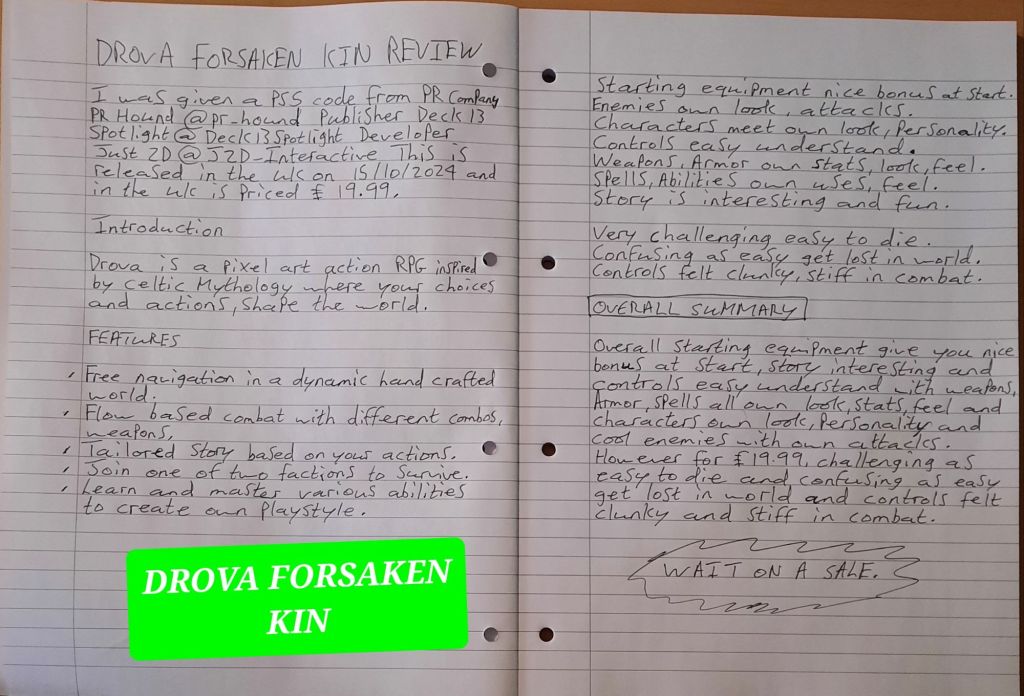 DROVA FORSAKEN KIN REVIEW
I was given a PS5 code from PR Company
PR Hound @pr_hound Publisher Deck 13
Spotlight @Deck13Spotlight Developer
Just 2D @J2D-Interactive This is
released in the uk on 15/10/2024 and
in the uk is Priced £19.99.
Introduction
Drova is a pixel art action RPG inspired
by Celtic Mythology where your choices
and actions, shape the world.
FEATURES
Free navigation in a dynamic hand crafted
world.
Flow based combat with different combos,
weapons,
Tailored story based on your actions.
Join one of two factions to survive.
Learn and master various abilities
to create own playstyle.
DROVA FORSAKEN
KIN
Starting equipment nice bonus at start.
Enemies own look, attacks.
Characters meet own look, Personality.
Controls easy understand.
Weapons, Armor own stats, look, feel.
Spells, Abilities own uses, feel.
Story is interesting and fun.
Very challenging easy to die.
Confusing as easy get lost in world.
Controls felt clunky, stiff in combat.
OVERALL SUMMARY
Overall starting equipment give you nice
bonus at start, story interesting and
controls easy understand with weapons,
Armor, spells all own look, stats, feel and
characters own look, Personality and
cool enemies with own attacks.
However for £19.99, challenging as
easy to die and confusing as easy
get lost in world and controls felt
clunky and stiff in combat.
WAIT ON A SALE.